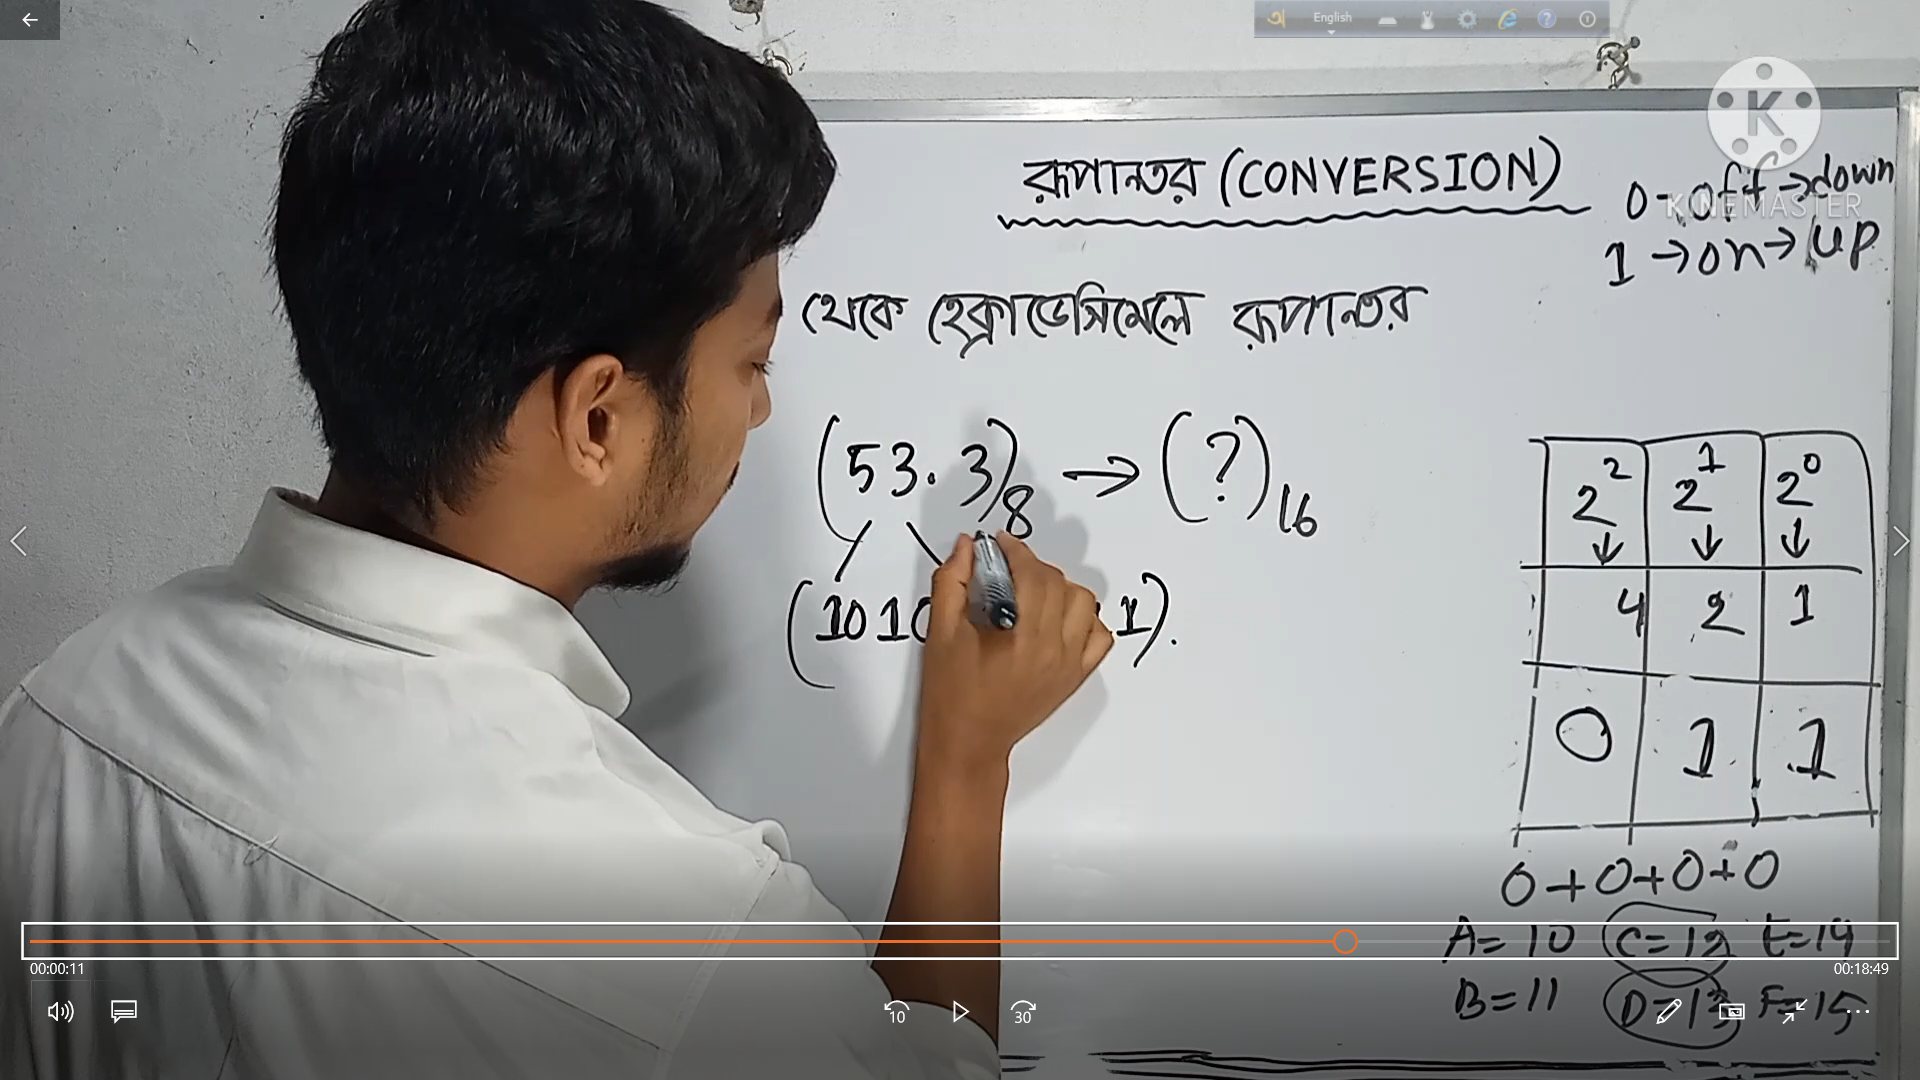 English
K
KINEMASTER
রূপান্তর (CONVERSION)
0 → off → down
1 → on → up
থেকে হেক্সাডেসিমেলে রূপান্তর
(53.3)8 → (?)16
(1010
1).
2² 2¹ 2⁰
↓ ↓ ↓
4 2 1
0 1 1
0+0+0+0
A=10 C=12 E=14
B=11 D=13 F=15
00:00:11
00:18:49
10
30